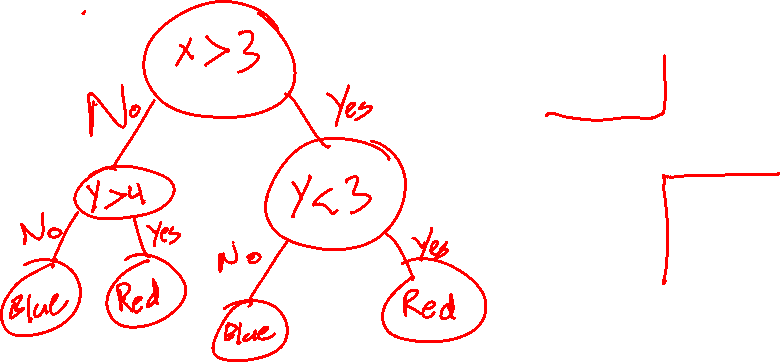 x>3
No
Yes
y>4
Y<3
No
Yes
No
Yes
Blue
Red
Blue
Red